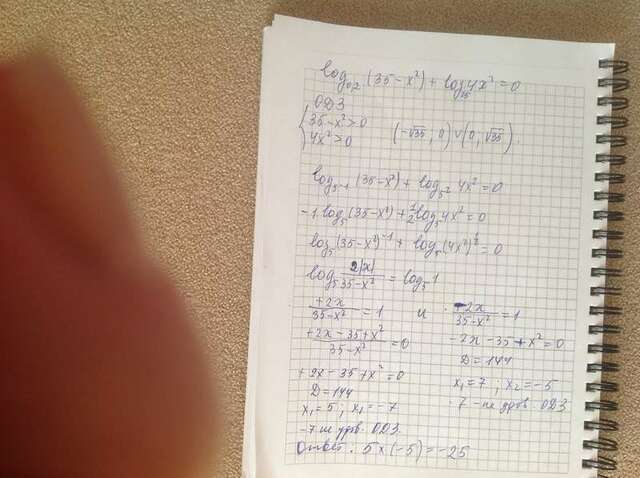 log₀,₂ (35-x²) + log₂₅ 4x² = 0
ОДЗ
{ 35-x²>0
4x²>0 (-√35; 0) ∪ (0; √35).
log₅₋₁ (35-x²) + log₅² 4x² = 0
-1 log₅ (35-x²) + ½ log₅ 4x² = 0
log₅ (35-x²)⁻¹ + log₅ (4x²)^½ = 0
log₅ 2|x| / 35-x² = log₅ 1
+2x / 35-x² = 1 и -2x / 35-x² = 1
+2x-35+x² / 35-x² = 0 -2x-35+x²=0
+2x-35+x²=0 D=144
D=144 x₁=7; x₂=-5
x₁=5; x₂=-7 7-не удов. ОДЗ
-7 не удов. ОДЗ
Ответ. 5×(-5)=-25